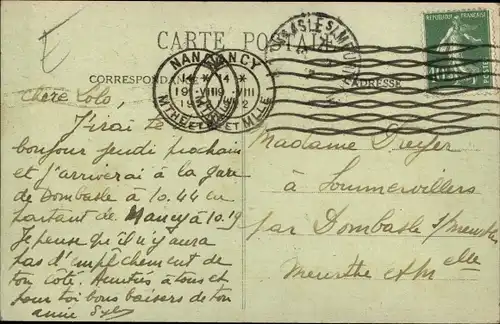 CARTE POSTALE
CORRESPONDANCE
ADRESSE
REPUBLIQUE FRANÇAISE
NANCY NANCY
14 * 14 *
19 -VIII 19 -VIII
MTHE ET MLLE
Chère Lolo,
J'irai te
bonjour jeudi prochain
et j'arriverai à la gare
de Dombasle à 10.44 en
partant de Nancy à 10.19
Je pense qu'il n'y aura
pas d'empêchement de
ton côté. Amitiés à tous et
pour toi bons baisers de ton
amie
Madame Dreyfer
à Sommervillers
par Dombasle s/ Meurthe
Meurthe et Mlle